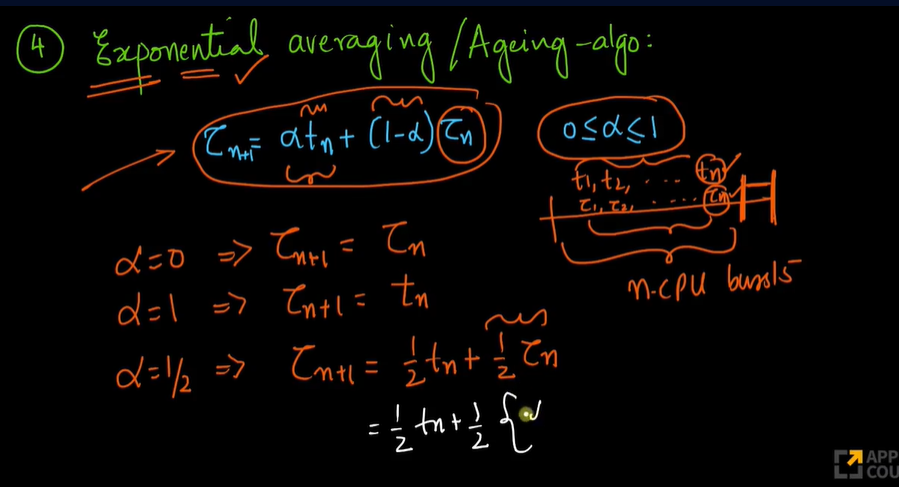 ④ Exponential averaging / Ageing-algo:
τn+1 = αtn + (1-α) τn
0 ≤ α ≤ 1
t1, t2, ..... tn
τ1, τ2, ..... τn
n-CPU bursts
α=0 => τn+1 = τn
α=1 => τn+1 = tn
α=1/2 => τn+1 = 1/2 tn + 1/2 τn
= 1/2 tn + 1/2 {
APP
COU